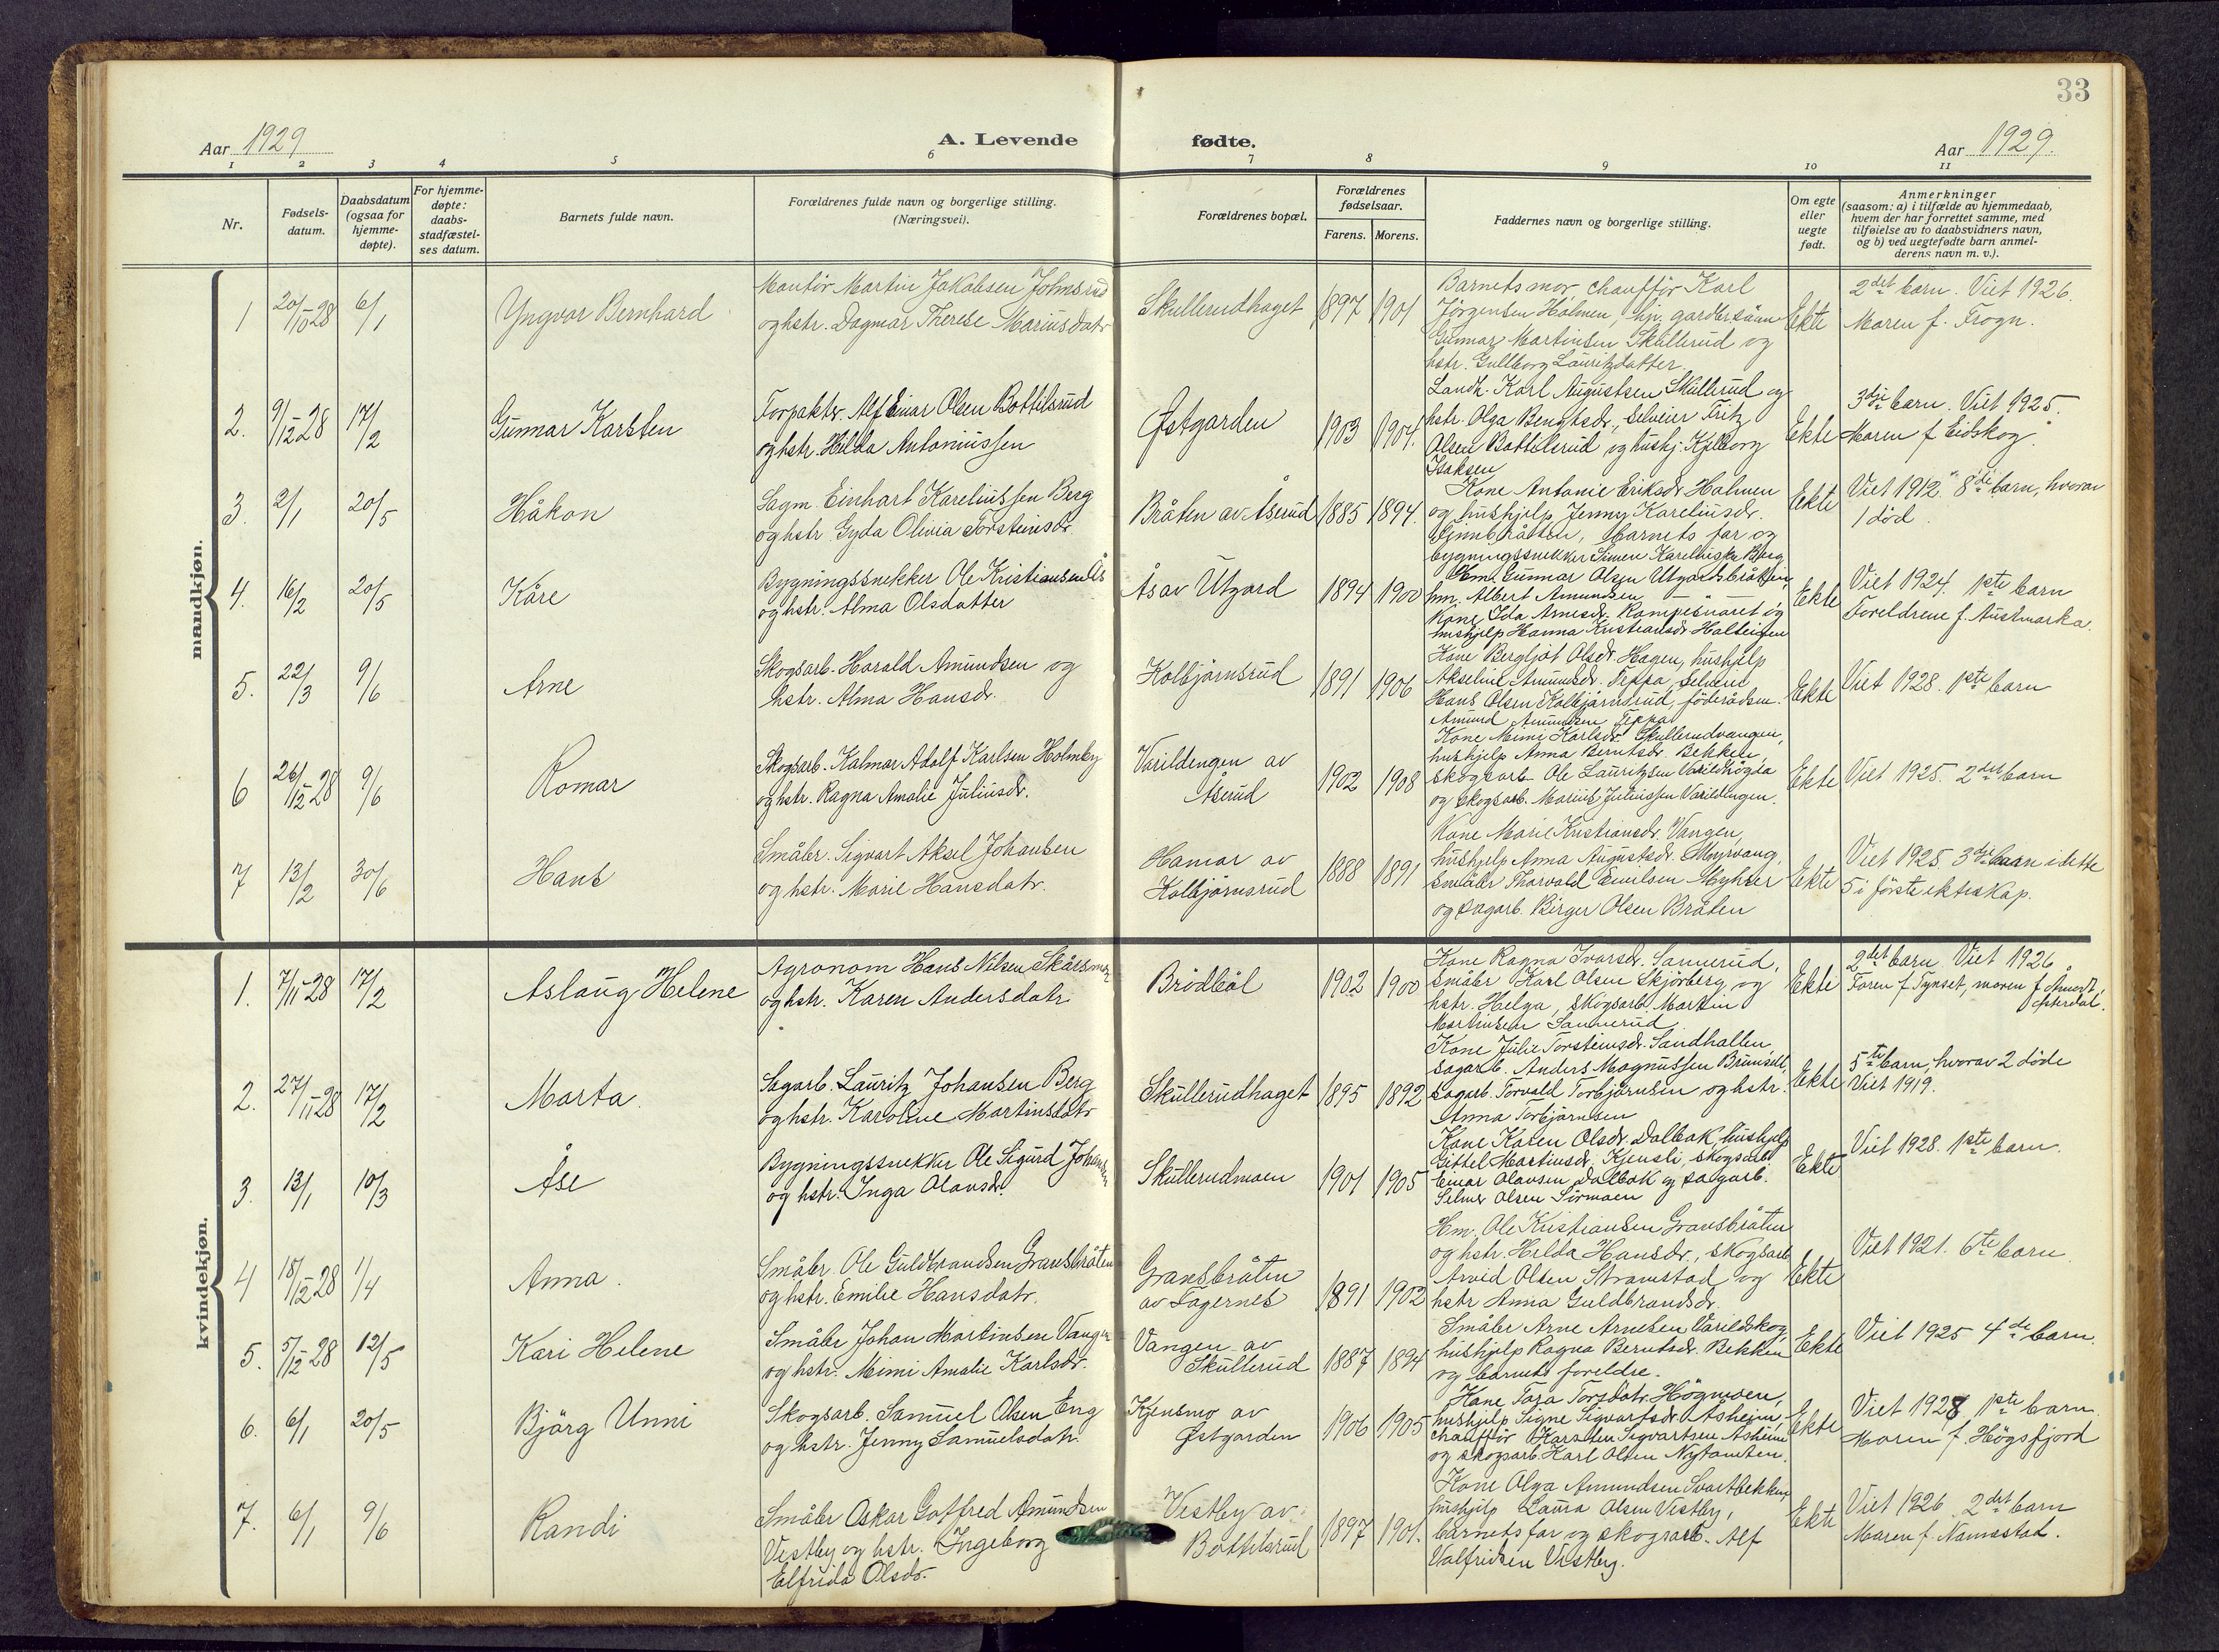 33
Aar 1929
A. Levende fødte.
Aar 1929.
1 2 3 4 5 6 7 8 9 10 11
Nr.
Fødsels-
datum.
Daabsdatum
(ogsaa for
hjemme-
døpte).
For hjemme-
døpte:
daabs-
stadfæstel-
ses datum.
Barnets fulde navn.
Forældrenes fulde navn og borgerlige stilling.
(Næringsvei).
Forældrenes bopæl.
Forældrenes
fødselsaar.
Farens. Morens.
Faddernes navn og borgerlige stilling.
Om egte
eller
uegte
født.
Anmerkninger
(saasom: a) i tilfælde av hjemmedaab,
hvem der har forrettet samme, med
tilføielse av to daabsvidners navn,
og b) ved uegtefødte barn anmel-
derens navn m. v.).
mandkjøn.
1 20/10-28 6/1 Yngvar Bernhard
Montör Martin Jakobsen Johnsrud
og hstr. Dagmar Therese Mariusdatr
Skullerudhaget 1897 1901
Barnets mor, chaufför Karl
Jörgensen Holmen, hj. gardbr.sönn
Gunnar Martinsen Skullerud og
hstr. Gullborg Lauritzdatter.
Ekte
2det barn. Viet 1926.
Moren f. Frogn.
2. 9/12-28 17/2 Gunnar Karsten
Forpakter Alf Einar Olsen Bottilsrud
og hstr. Hilda Antoniussen
Østgarden 1903 1904.
Landh. Karl Augustsen Skullerud og
hstr. Olga Bengtsdr., selveier Fritz
Olsen Bottilsrud og hushj. Kjellborg
Isaksen
Ekte
3dje barn. Viet 1925.
Moren f Eidskog.
3. 2/1 20/5 Håkon
Sagm. Einhart Kareliussen Berg
og hstr. Gyda Olivia Torsteinsdr.
Bråten av Åserud 1885 1894.
Kone Antonie Eriksdr. Holmen
og hushjelp Jenny Kareliusdr.
Finnbråten, barnets far og
bygningssnekker Simen Kareliussen Berg
Ekte
Viet 1912. 8de barn, hvorav
1 död.
4. 16/2 20/5 Kåre
Bygningssnekker Ole Kristiansen Ås
og hstr. Alma Olsdatter
Ås av Utgard 1894 1900
Hm. Gunnar Olsen Utgardsbråten,
hm. Albert Amundsen
Kone Ida Arnesdr. og
hushjelp Hanna Kristiansdr.
Ekte
Viet 1924. 1ste barn
Foreldrene f. Austmarka.
5. 22/3 9/6 Arne
Skogsarb. Harald Amundsen og
hstr. Alma Hansdr.
Kolbjörnsrud 1891 1906
Kone Bergljot Olsdr. Hagen, hushjelp
Akseline Amundsdr. Teppa, selveier
Hans Olsen Kolbjörnsrud, föderådsm.
Amund Amundsen Teppa
Ekte
Viet 1928. 1ste barn
6 26/12-28 9/6 Romar
Skogsarb. Kalmar Adolf Karlsen Holmby
og hstr. Ragna Amalie Juliusdr.
Varildengen av
Åserud
1902 1908
Kone Mimi Karlsdr. Skullerudvangen,
hushjelp Anna Berntsdr. Bekken,
skogsarb. Ole Lauritzsen Varildhögda
og skogsarb. Marius Juliussen Varildengen.
Ekte
Viet 1925. 2det barn
7 13/2 30/6 Hans
Småbr. Sigvart Aksel Johansen
og hstr. Marie Hansdatr.
Hamar av
Kolbjörnsrud
1888 1891
Kone Marie Kristiansdr. Vangen,
hushjelp Anna Augustsdr. Myrvang,
småbr. Thorvald Emilsen Myhrer
og sagarb. Birger Olsen Bråten
Ekte
Viet 1925 3dje barn i dette
5 i förste ekteskap.
kvindekjøn.
1. 7/11-28 17/2 Aslaug Helene
Agronom Hans Nilsen Skårsmoen
og hstr. Karen Andersdatr
Brödböl 1902 1900
Kone Ragna Ivarsdr. Sannerud,
småbr. Karl Olsen Skjörberg og
hstr. Helga, skogsarb. Martin
Martinsen Sannerud
Ekte
2det barn. Viet 1926
Faren f Tynset, moren f Åmodt,
Østerdal.
2. 27/11-28 17/2 Marta
Sagarb. Lauritz Johansen Berg
og hstr. Karoline Martinsdatr
Skullerudhaget 1895 1892
Kone Julie Torsteinsdr. Sandhallen,
sagarb. Anders Magnussen
sagarb. Torvald Torbjörnsen og hstr.
Anna Torbjörnsen
Ekte
5te barn, hvorav 2 döde
Viet 1919.
3. 13/1 10/3 Åse
Bygningssnekker Ole Sigurd Johansen
og hstr. Inga Olavsdr.
Skullerudmoen 1901 1905
Kone Karen Olsdr. Dalbak, hushjelp
Gittel Martinsdr. Kjensli, skogsarb
Einar Olavsen Dalbak og sagarb.
Selmer Olsen Sörmoen
Ekte
Viet 1928. 1ste barn.
4 18/12-28 1/4 Anna.
Småbr. Ole Guldbrandsen Gransbråten
og hstr. Emilie Hansdatr.
Gransbråten
av Fagernes
1891 1902
Hm. Ole Kristiansen Gransbråten
og hstr. Hilda Hansdr., skogsarb
Arvid Olsen Stramstad og
hstr Anna Guldbrandsdr.
Ekte
Viet 1921. 6te barn.
5. 5/12-28 12/5 Kari Helene
Småbr Johan Martinsen Vangen
og hstr. Mimi Amalie Karlsdr.
Vangen av
Skullerud
1887 1894
Småbr Arne Arnesen Varildskog,
hushjelp Ragna Berntsdr. Bekken
og barnets foreldre.
Ekte
Viet 1925 4de barn.
6. 6/1 20/5 Bjärg Unni
Skogsarb. Samuel Olsen Eng
og hstr. Jenny Samuelsdatr.
Kjensmo av
Østgarden
1906 1905
Kone Tora Torsdatr. Högmoen,
hushjelp Signe Sigvartsdr. Åsheim,
chaufför Karsten Sigvartsen Åsheim
og skogsarb. Karl Olsen
Ekte
Viet 1928 1ste barn.
Moren f. Högsfjord
7. 6/1 9/6 Randi
Småbr Oskar Gotfred Amundsen
Vestby og hstr. Ingeborg
Elfrida Olsdr.
Vestby av
Bottilsrud
1897 1901.
Kone Olga Amundsen Svartbekken,
hushjelp Laura Olsen Vestby,
barnets far og skogsarb. Alf
Valfridsen Vestby.
Ekte
Viet 1926. 2det barn
Moren f. Namsstad.